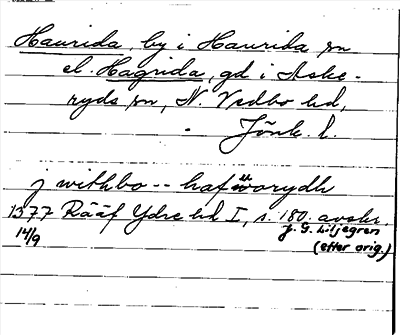 Haurida, by i Haurida sn
el. Hagrida, gd i Aske-
ryds sn, N. Vedbo hd,
Jönk. l.
j withbo -- hafworydh
1377 Rääf Ydre hd I, s. 180. avskr.
14/9 J. G. Liljegren
(efter orig.)